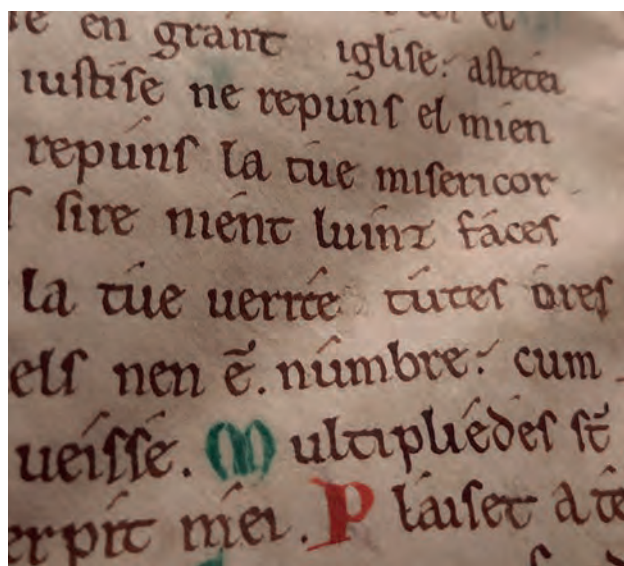 re en grant iglise: astetei
iustise ne repuns el mien
repuns la tue misericor
s sire nient luinz faces
la tue uerite tutes ores
els nen ē. numbre: cum
ueisse. Multipliedes st̄
erpit mei. Plaiset a te